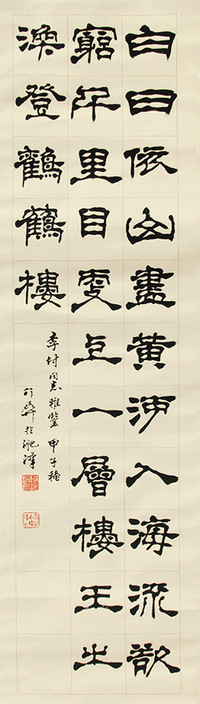 白日依山盡黃河入海流欲
窮千里目更上一層樓王之
渙登鸛鶴樓
李村同志雅鑒 甲子穐